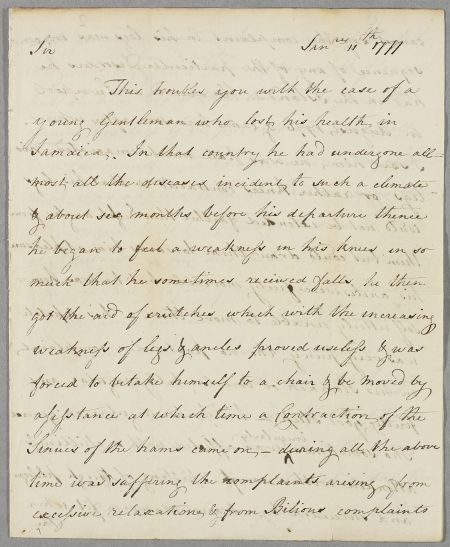 Sir Janry 11th 1777
This troubles you with the case of a
young Gentleman who lost his health in
Jamaica. In that country he had undergone all-
most all the diseases incident to such a climate
& about six months before his departure thence
he began to feel a weakness in his knees in so
much that he sometimes received falls he then
got the aid of crutches which with the increasing
weakness of legs & ancles proved useless & was
forced to betake himself to a chair & be moved by
assistance at which time a Contraction of the
Sinues of the hams came on, – during all the above
time was suffering the complaints arising from
excessive relaxation, & from Bilious complaints